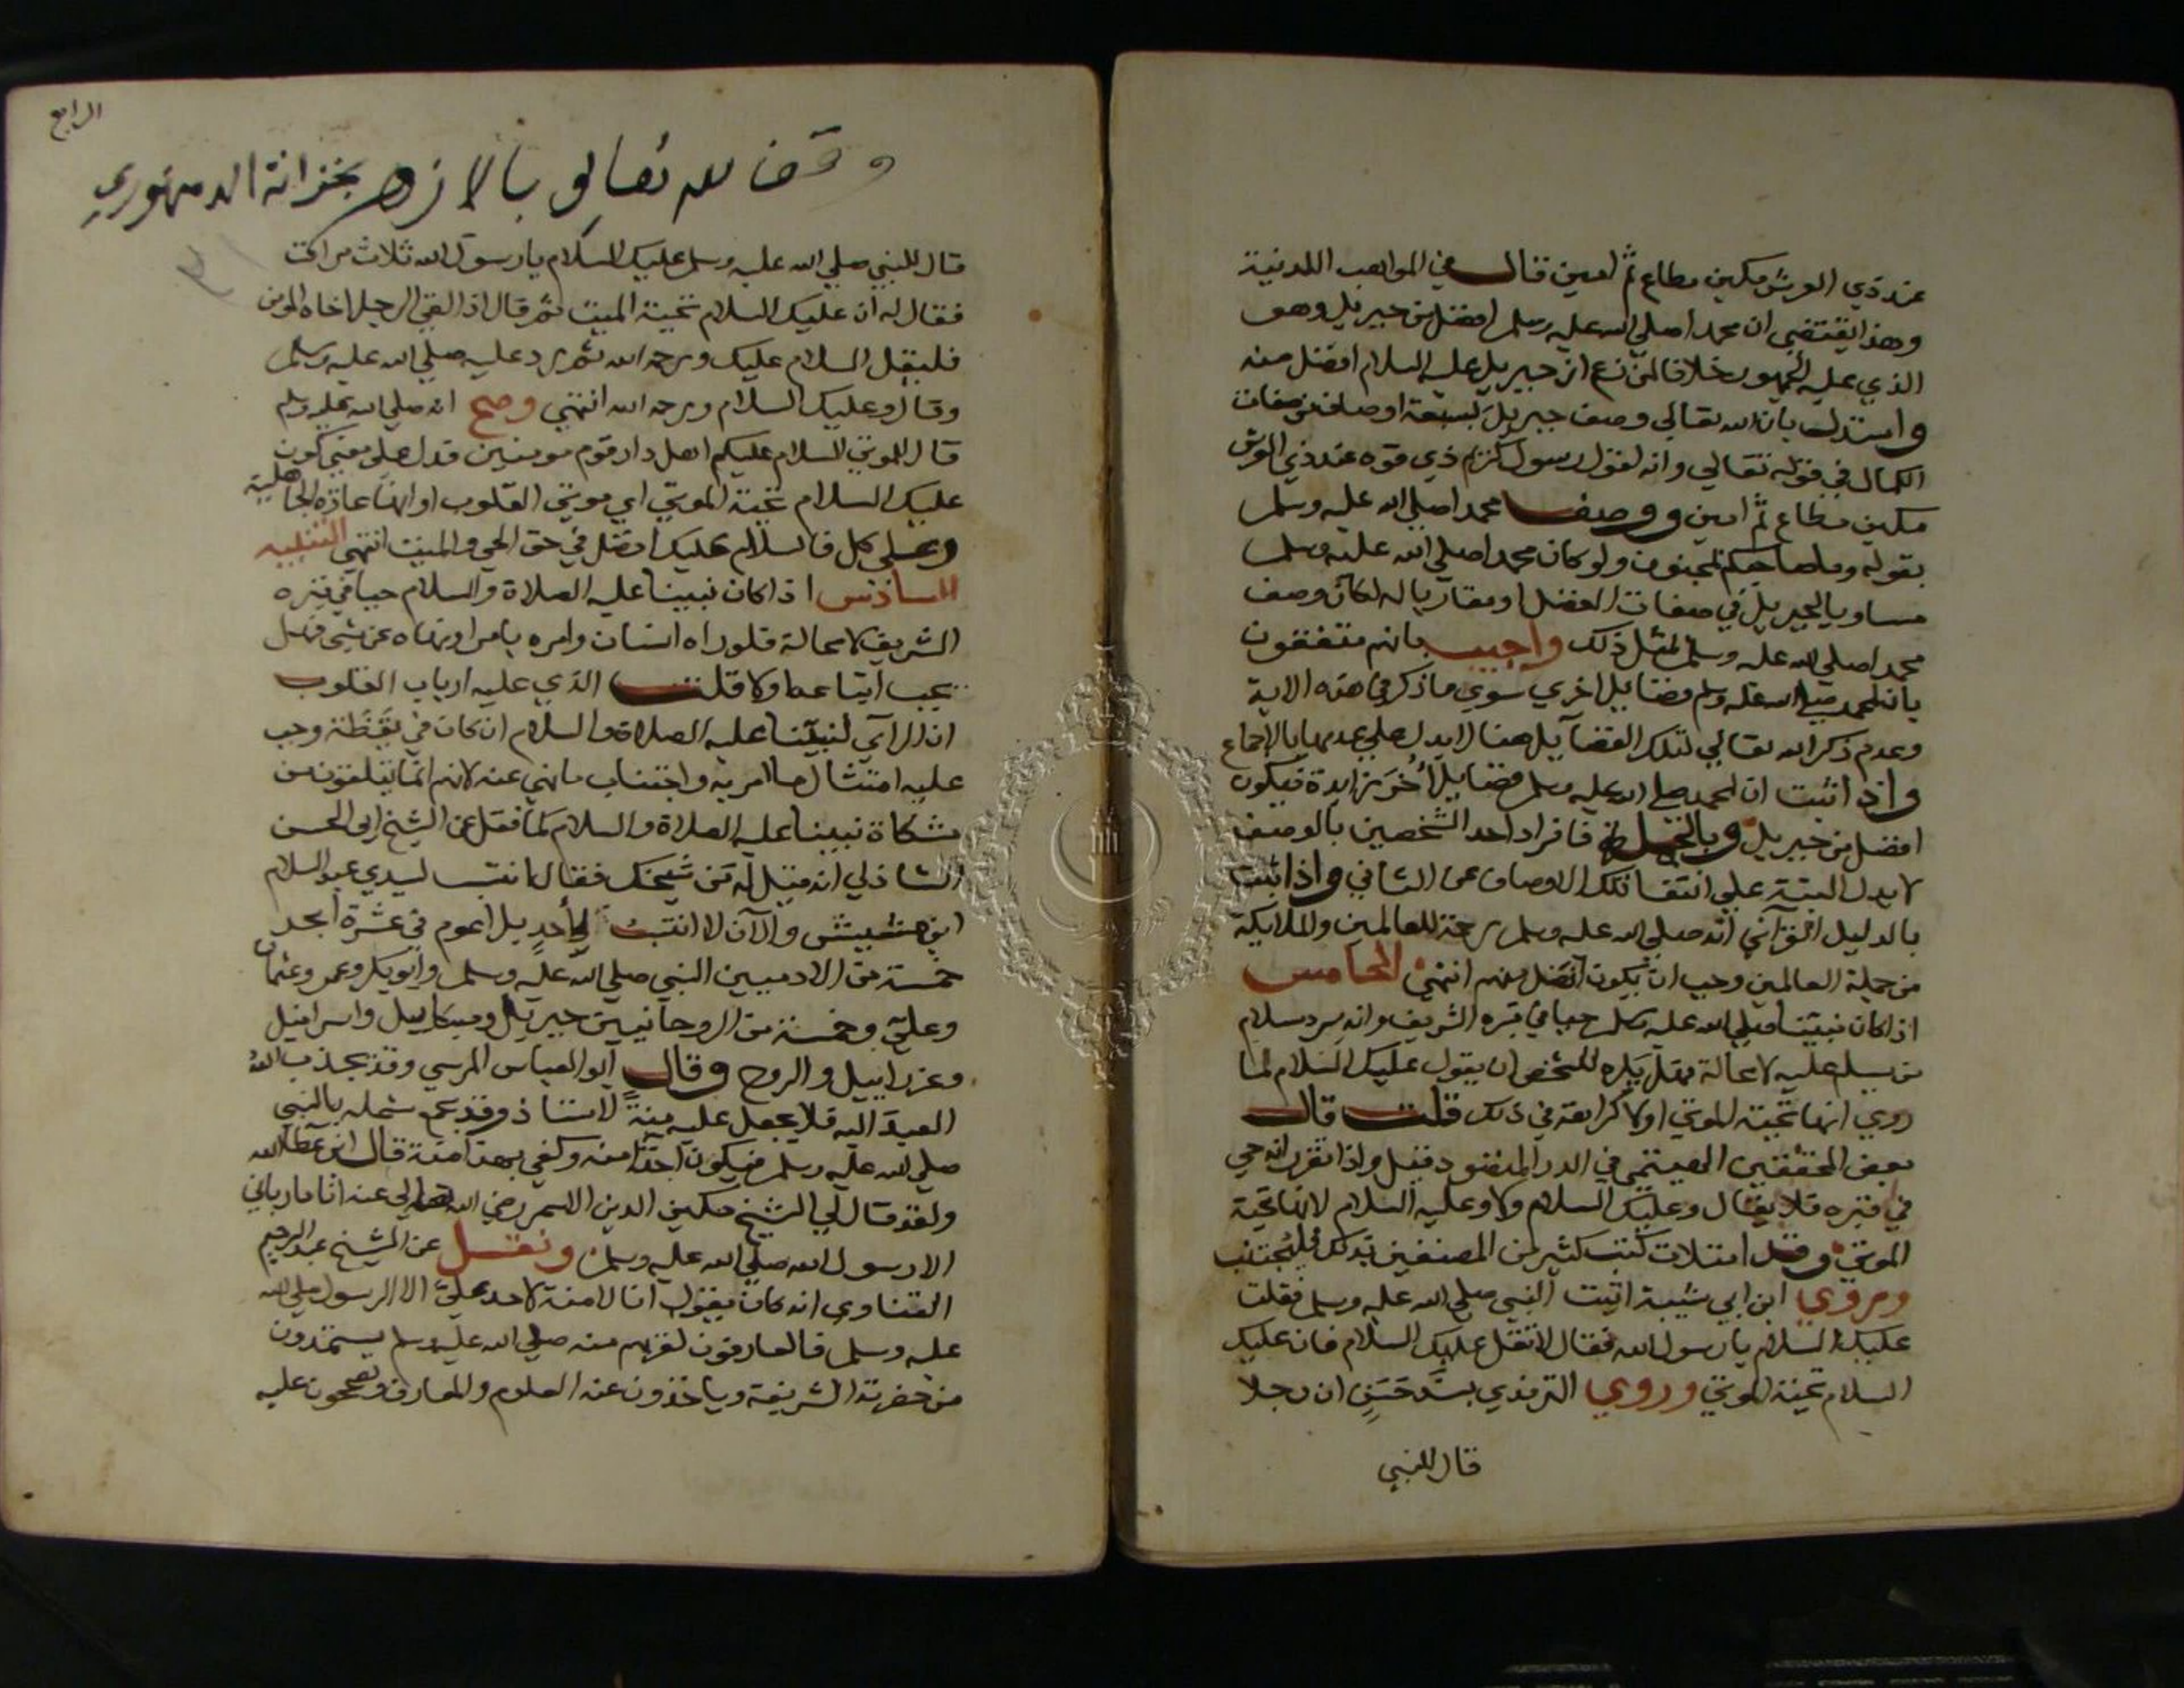 عند ذي العرش مكين مطاع ثم امين قال في المواهب اللدنية
وهذا يقتضي ان محمدا صلي الله عليه وسلم افضل من جبريل وهو
الذي عليه الجمهور خلافا لمن زعم ان جبريل عليه السلام افضل منه
واستدل بان الله تعالي وصف جبريل بسبعة اوصاف من صفات
الكمال في قوله تعالي وانه لقول رسول كريم ذي قوه عند ذي العرش
مكين مطاع ثم امين ووصف محمدا صلي الله عليه وسلم
بقوله وما صاحبكم بمجنون ولو كان محمدا صلي الله عليه وسلم
مساويا لجبريل في صفات الفضل او مقاربا له لكان وصف
محمدا صلي الله عليه وسلم بمثل ذلك واجيب بانهم متفقون
بان لمحمد صلي الله عليه وسلم فضايل اخري سوي ما ذكر في هذه الاية
وعدم ذكر الله تعالي لتلك الفضآيل هنا لا يدل علي عدمها بالاجماع
واذا اثبت ان لمحمد صلي الله عليه وسلم فضايل أُخَر زايدة فيكون
افضل من جبريل وبالجملة فافراد احد الشخصين بالوصف
لا يدل البتة علي انتفا تلك الاوصاف عن الثاني واذا ثبت
بالدليل القرآني انه صلي الله عليه وسلم رحمة للعالمين والملايكة
من جملة العالمين وجب ان يكون افضل منهم انتهي الخامس
اذا كان نبينا صلي الله عليه وسلم حيا في قبره الشريف وانه يرد سلام
من يسلم عليه لا محالة فهل يكره للشخص ان يقول عليك السلام لما
روي انها تحية الموتي او لا كراهة في ذلك قلت قال
بعض المحققين الهيتمي في الدر المنضود قيل واذا تقرر انه حي
في قبره فلا يقال وعليك السلام ولا وعليه السلام لانها تحية
الموتي وقد امتلات كتب كثير من المصنفين بذلك فليجتنب
وروي ابن ابي شيبة اتيت النبي صلي الله عليه وسلم فقلت
عليك السلام يا رسول الله فقال لا تقل عليك السلام فان عليك
السلام تحية الموتي وروي الترمذي بسند حسن ان رجلا
قال للنبي
الرابع
وقف لله تعالى بالازهر بخزانة الدمنهوري
قال للنبي صلي الله عليه وسلم عليك السلام يا رسول الله ثلاث مرات
فقال له ان عليك السلام تحية الميت ثم قال اذا لقي الرجل اخاه المومن
فليقل السلام عليك ورحمة الله ثم رد عليه صلي الله عليه وسلم
وقال وعليك السلام ورحمة الله انتهي وصح انه صلي الله عليه وسلم
قال للموتي السلام عليكم اهل دار قوم مومنين فدل علي معني كون
عليك السلام تحية الموتي اي موتي القلوب او انها عادة الجاهلية
وعلي كل فالسلام عليك افضل في حق الحي والميت انتهي التنبيه
السادس اذا كان نبينا عليه الصلاة والسلام حيا في قبره
الشريف لا محالة فلو راه انسان وامره بامر او نهاه عن شي فهل
يجب اتباعه او لا قلت الذي عليه ارباب القلوب
ان الرآي لنبينا عليه الصلاة والسلام ان كان في يقظة وجب
عليه امتثال ما امر به واجتناب ما نهي عنه لانهم انما يتلقون من
مشكاة نبينا عليه الصلاة والسلام كما نقل عن الشيخ ابي الحسن
الشاذلي انه قيل له من شيخك فقال كنت انتسب لسيدي عبد السلام
ابن مشيش والآن لا انتسب لأحد بل اعوم في عشرة ابحر
خمسة من الادميين النبي صلي الله عليه وسلم وابو بكر وعمر وعثمان
وعلي وخمسة من الروحانيين جبريل وميكاييل واسرافيل
وعزراييل والروح وقال ابو العباس المرسي وقد يجذب الله
العبد اليه فلا يجعل عليه منة لاستاذ وقد يجمع شمله بالنبي
صلي الله عليه وسلم فيكون اخذا منه وكفي بهذا منة قال ابن عطا الله
ولقد قال لي الشيخ مكين الدين الاسمر رضي الله تعالي عنه انا ما رباني
الا رسول الله صلي الله عليه وسلم ونقل عن الشيخ عبد الرحيم
القناوي انه كان يقول انا لا منة لاحد علي الا الرسول صلي الله
عليه وسلم فالعارفون لقربهم منه صلي الله عليه وسلم يستمدون
من حضرته الشريفة وياخذون عنه العلوم والمعارف ويصححون عليه